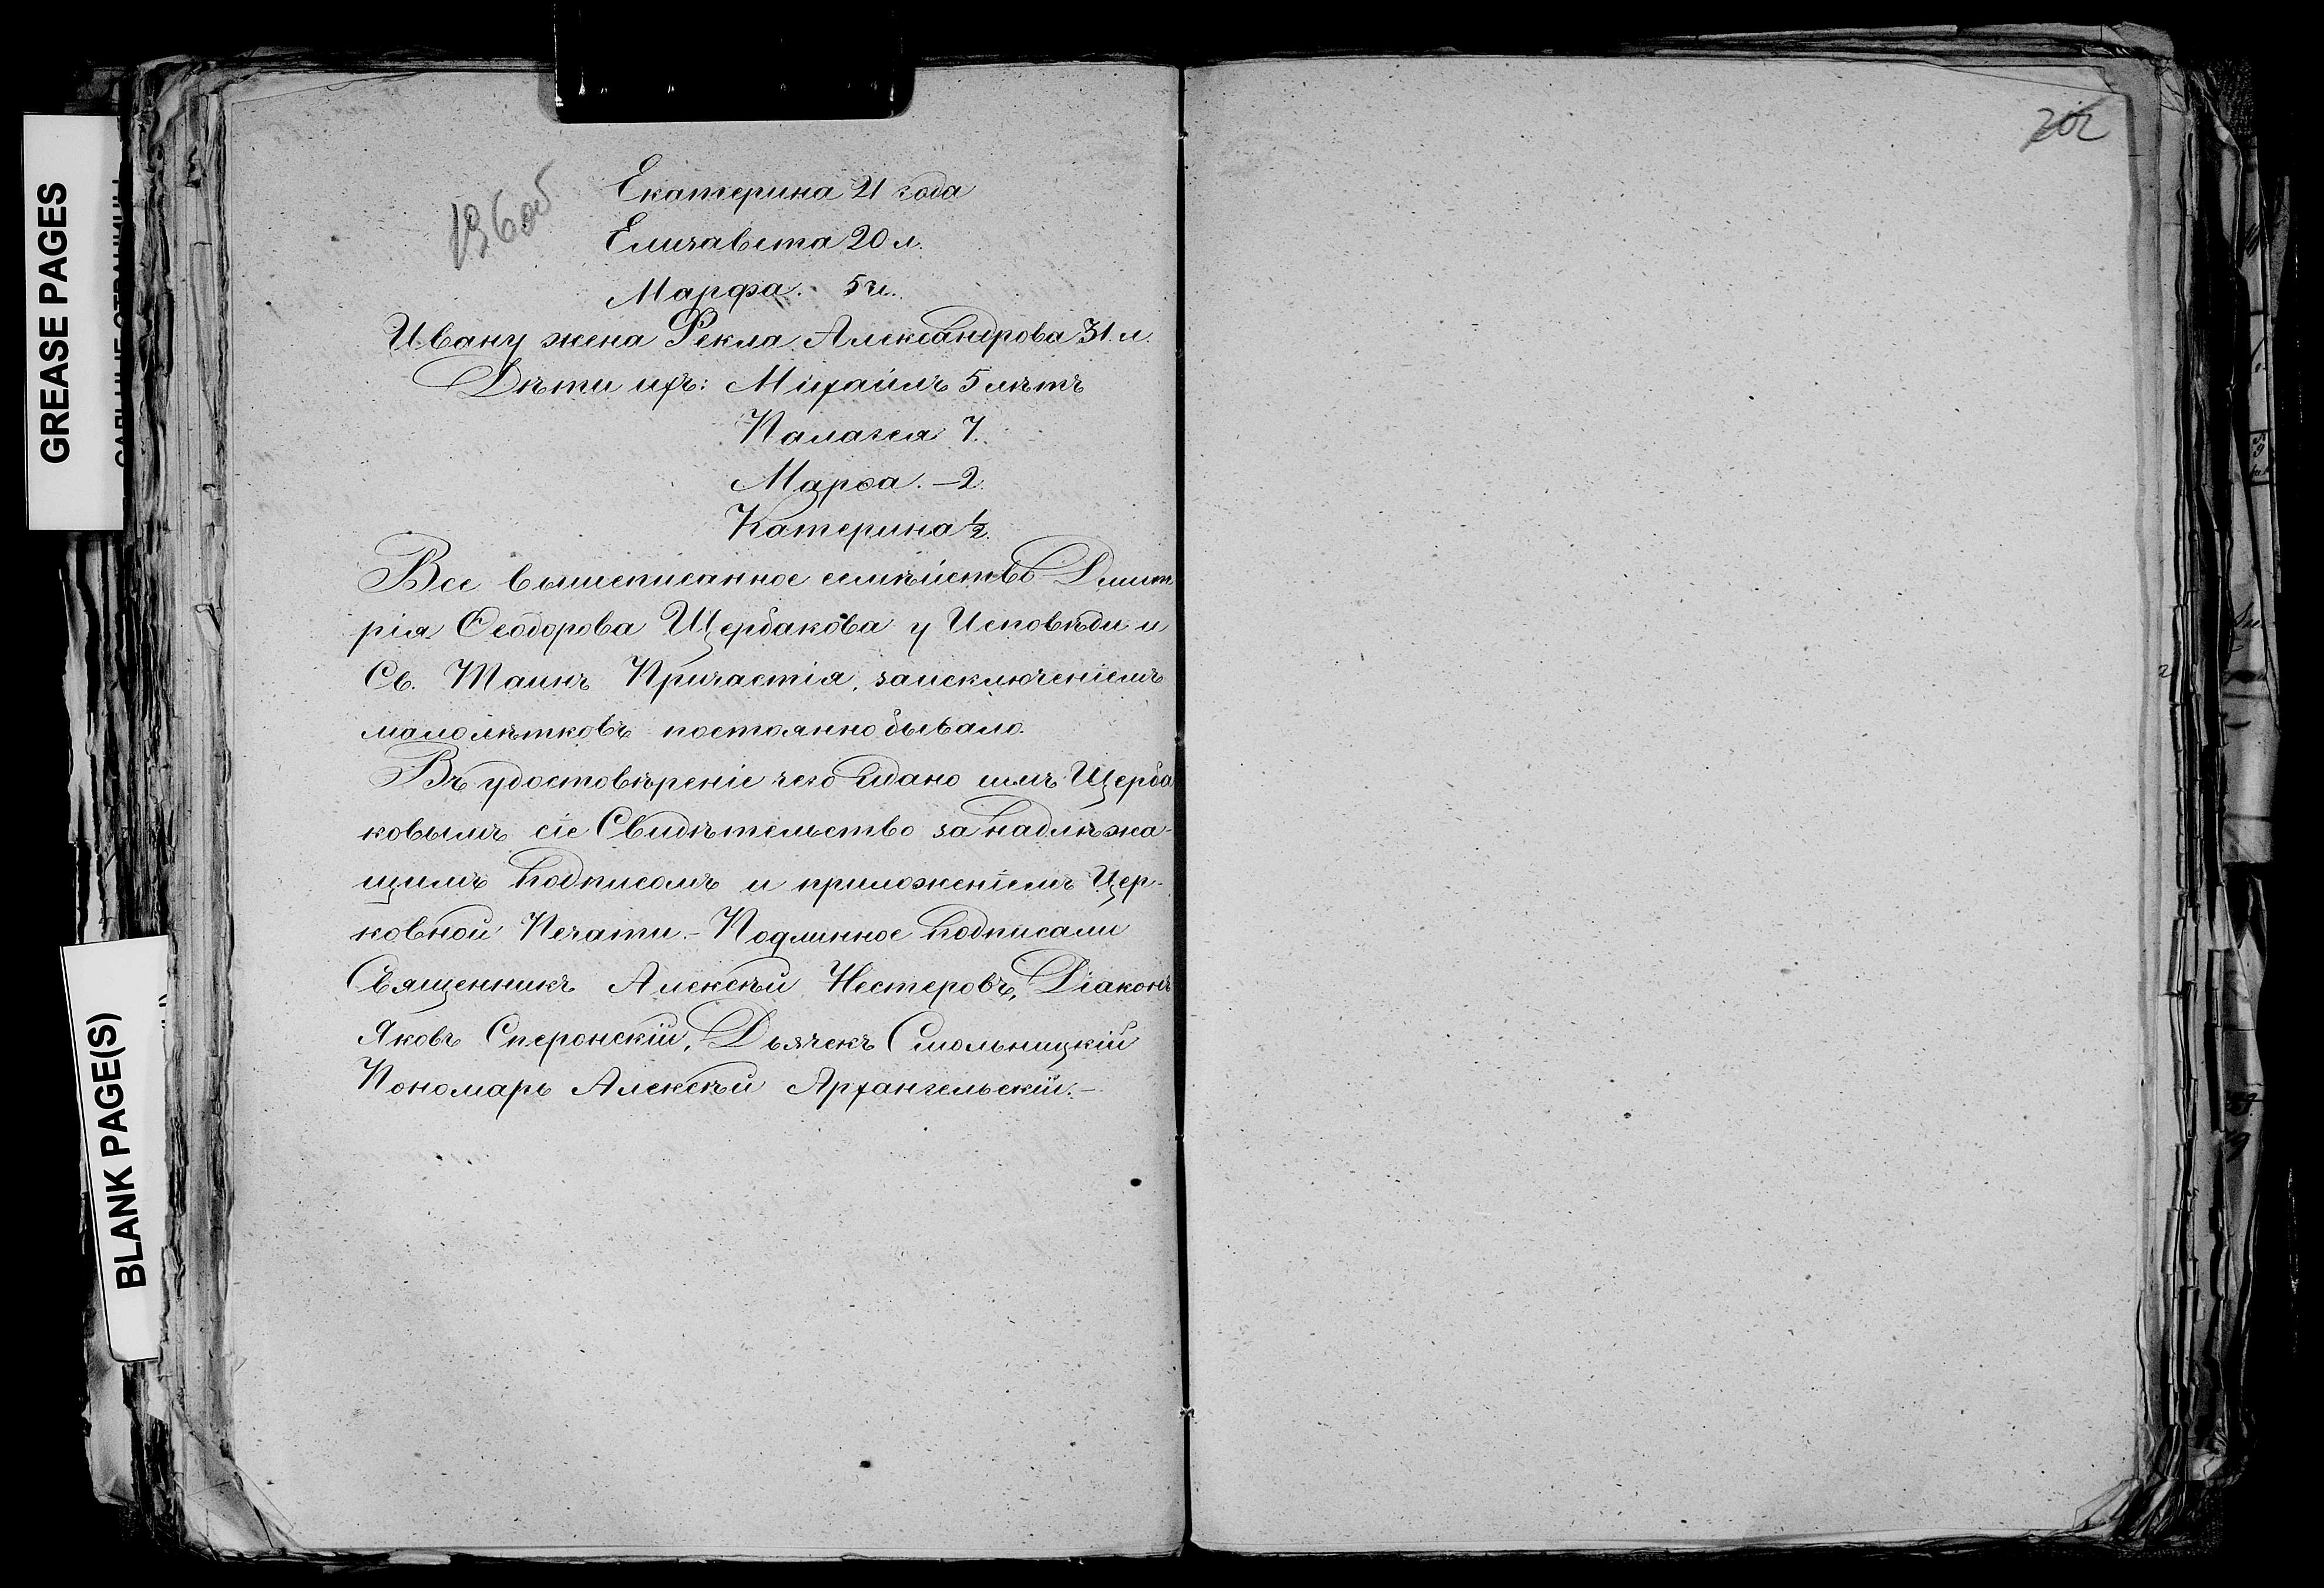 GREASE PAGES
BLANK PAGE(S)
196 об
202
Екатерина 21 года
Елизавета 20 л.
Марфа. 5 л.
Ивану жена Фекла Александрова 31 л.
Дѣти ихъ: Михаилъ 5 лѣтъ
Палагея 7.
Марѳа. – 2.
Катерина ½.
Все вышеписанное семѣйство Дмит
рія Ѳеодорова Щербакова у Исповѣди и
Св. Таинъ Причастія, заисключеніемъ
малолѣтковъ постоянно бывало.
Въ удостовѣреніе чего и дано имъ Щерба
ковымъ сіе Свидѣтельство за надлѣжа-
щимъ подписомъ и приложеніемъ Цер-
ковной Печати. – Подлинное подписали
Священникъ Алексѣй Нестеровъ, Діаконъ
Яковъ Сперонскій, Дьячекъ Смольницкій
Пономарь Алексѣй Архангельскій. –